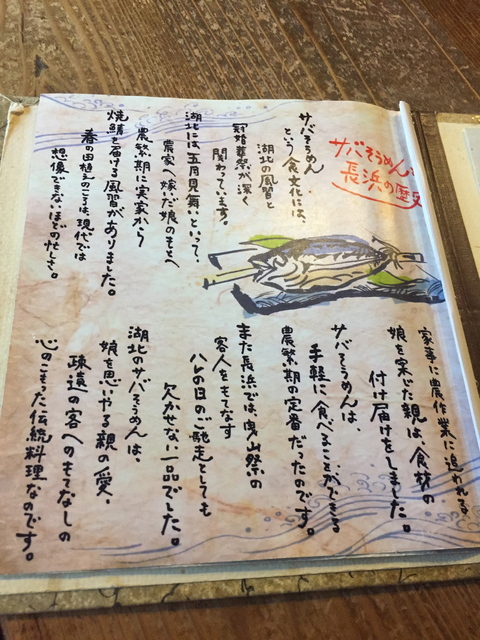 サバそうめんと
長浜の歴史
サバそうめん
という食文化は、
湖北の風習と
冠婚葬祭が深く
関わっています。
湖北には、五月見舞いといって、
農家へ嫁いだ娘のもとへ
農繁期に実家から
焼鯖を届ける風習がありました。
春の田植のころは、現代では
想像できないほどの忙しさ。
家事に農作業に追われる、
娘を案じた親は、食材の
付け届けをしました。
サバそうめんは、
手軽に食べることができる
農繁期の定番だったのです。
また長浜では、曳山祭の
客人をもてなす
ハレの日のご馳走としても
欠かせない一品でした。
湖北のサバそうめんは、
娘を思いやる親の愛、
疎遠の客へのもてなしの
心のこもった伝統料理なのです。